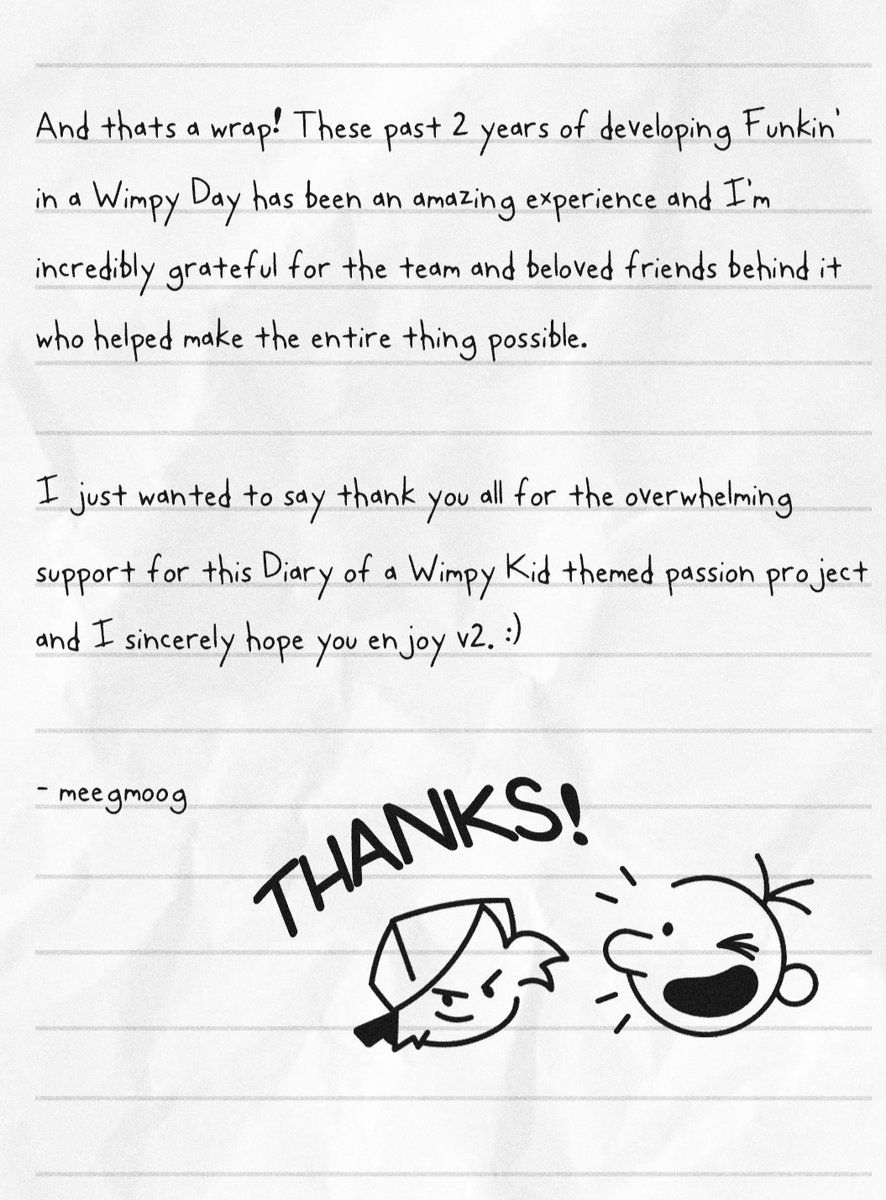 And thats a wrap! These past 2 years of developing Funkin'
in a Wimpy Day has been an amazing experience and I'm
incredibly grateful for the team and beloved friends behind it
who helped make the entire thing possible.
I just wanted to say thank you all for the overwhelming
support for this Diary of a Wimpy Kid themed passion project
and I sincerely hope you enjoy v2. :)
- meegmoog
THANKS!